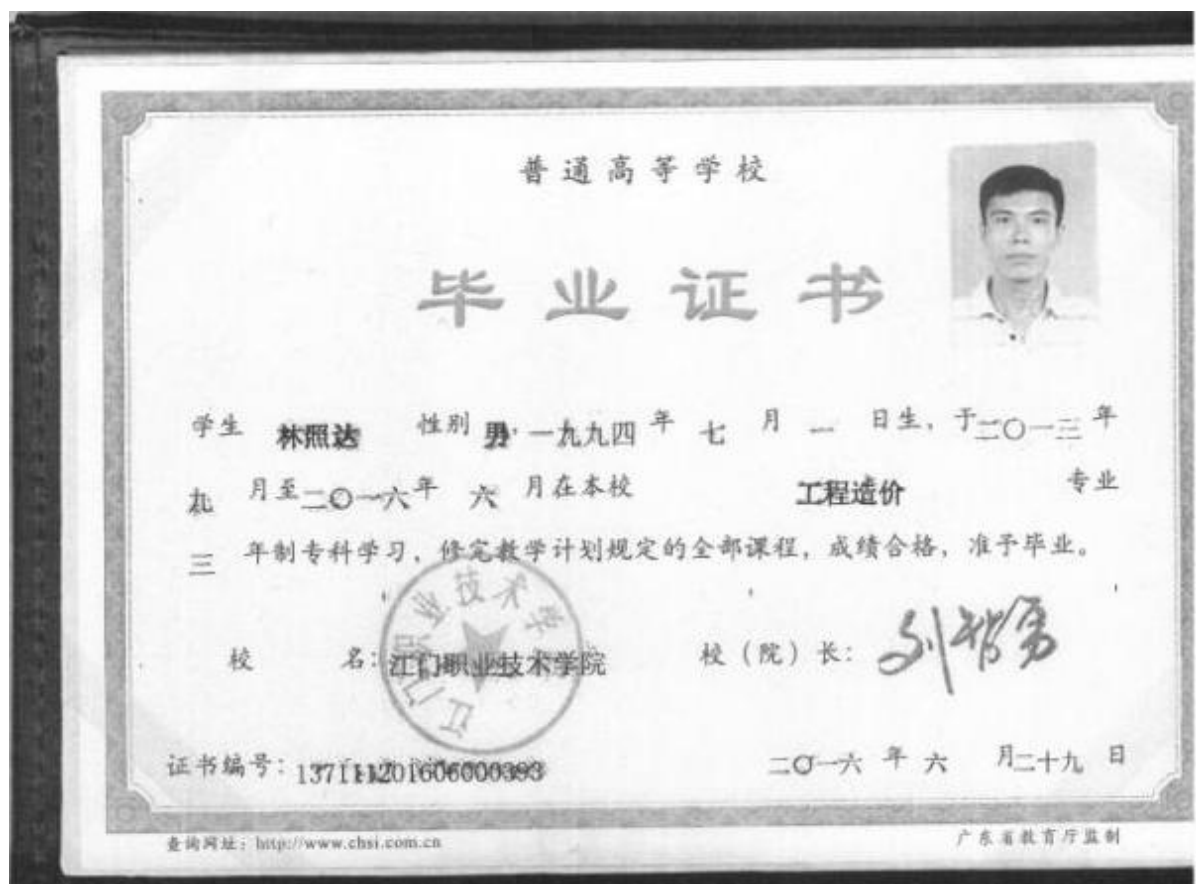 普通高等学校
毕业证书
学生 林照达 性别 男, 一九九四 年 七 月 一 日生, 于二〇一三 年
九 月至二〇一六年 六 月在本校 工程造价 专业
三 年制专科学习, 修完教学计划规定的全部课程, 成绩合格, 准予毕业。
江门职业技术学院
校 名: 江门职业技术学院 校 (院) 长: 
证书编号: 二〇一六 年 六 月二十九 日
查询网址: http://www.chsi.com.cn 广东省教育厅监制